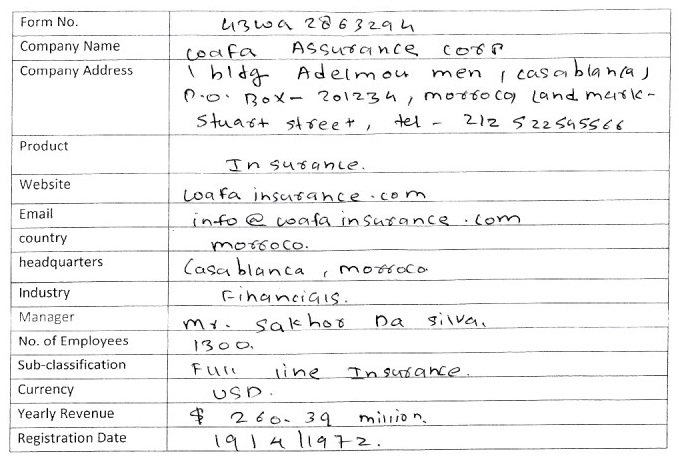 Form No. 43wa 2863294
Company Name wafa Assurance corp
Company Address 1 bldg Adelmou men, (casablanca)
P.O. Box- 201234, morroco, Landmark-
Stuart street, tel - 212 522545566
Product Insurance.
Website wafainsurance.com
Email info@wafainsurance.com
country morroco.
headquarters Casablanca, morroco
Industry Financials.
Manager Mr. Sakhor Da silva.
No. of Employees 1300.
Sub-classification Full line Insurance.
Currency USD.
Yearly Revenue $ 260.39 million.
Registration Date 19/4/1972.